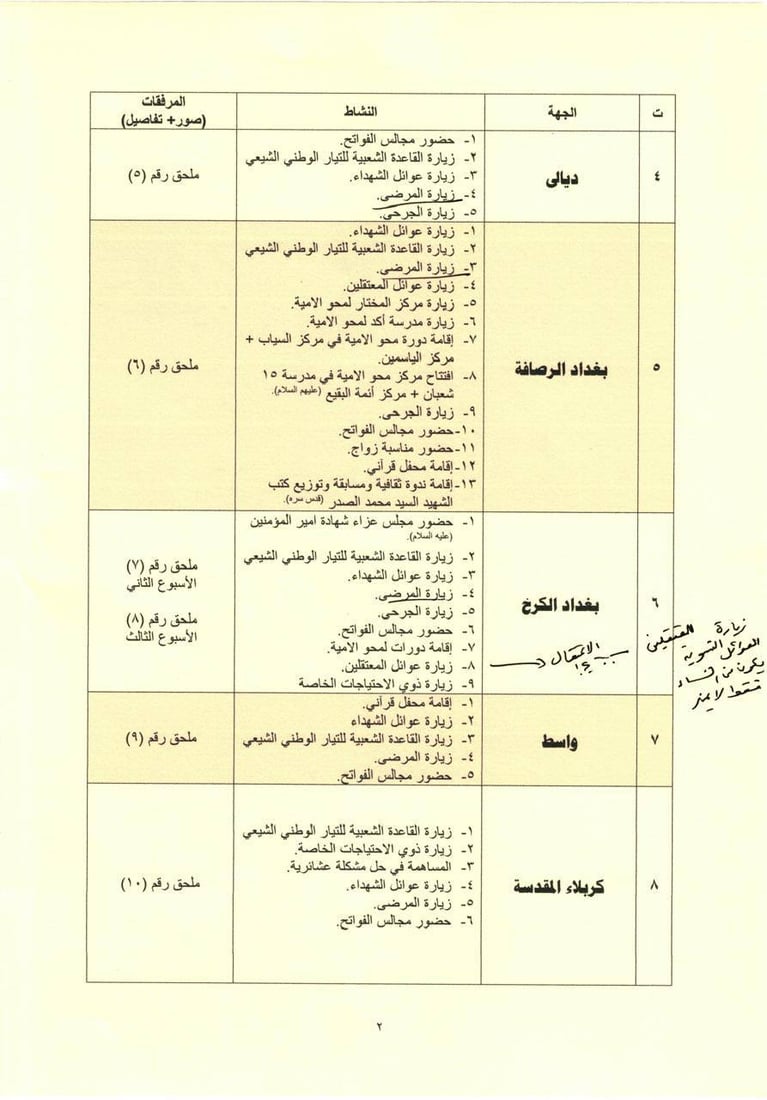 ت الجهة النشاط المرفقات
(صور+ تفاصيل)
٤ ديالى
١- حضور مجالس الفواتح.
٢- زيارة القاعدة الشعبية للتيار الوطني الشيعي
٣- زيارة عوائل الشهداء.
٤- زيارة المرضى.
٥- زيارة الجرحى.
ملحق رقم (٥)
٥ بغداد الرصافة
١- زيارة عوائل الشهداء.
٢- زيارة القاعدة الشعبية للتيار الوطني الشيعي
٣- زيارة المرضى.
٤- زيارة عوائل المعتقلين.
٥- زيارة مركز المختار لمحو الامية.
٦- زيارة مدرسة أكد لمحو الامية.
٧- إقامة دورة محو الامية في مركز السياب +
مركز الياسمين.
٨- افتتاح مركز محو الامية في مدرسة ١٥
شعبان + مركز أئمة البقيع (عليهم السلام).
٩- زيارة الجرحى.
١٠-حضور مجالس الفواتح.
١١-حضور مناسبة زواج.
١٢-إقامة محفل قرآني.
١٣-إقامة ندوة ثقافية ومسابقة وتوزيع كتب
الشهيد السيد محمد الصدر (قدس سره).
ملحق رقم (٦)
٦ بغداد الكرخ
١- حضور مجلس عزاء شهادة امير المؤمنين
(عليه السلام).
٢- زيارة القاعدة الشعبية للتيار الوطني الشيعي
٣- زيارة عوائل الشهداء.
٤- زيارة المرضى.
٥- زيارة الجرحى.
٦- حضور مجالس الفواتح.
٧- إقامة دورات لمحو الامية.
٨- زيارة عوائل المعتقلين.
٩- زيارة ذوي الاحتياجات الخاصة
ملحق رقم (٧)
الأسبوع الثاني
ملحق رقم (٨)
الأسبوع الثالث
زيارة
العوائل
٧ واسط
١- إقامة محفل قرآني.
٢- زيارة عوائل الشهداء
٣- زيارة القاعدة الشعبية للتيار الوطني الشيعي
٤- زيارة المرضى.
٥- حضور مجالس الفواتح.
ملحق رقم (٩)
٨ كربلاء المقدسة
١- زيارة القاعدة الشعبية للتيار الوطني الشيعي
٢- زيارة ذوي الاحتياجات الخاصة.
٣- المساهمة في حل مشكلة عشائرية.
٤- زيارة عوائل الشهداء.
٥- زيارة المرضى.
٦- حضور مجالس الفواتح.
ملحق رقم (١٠)
٢